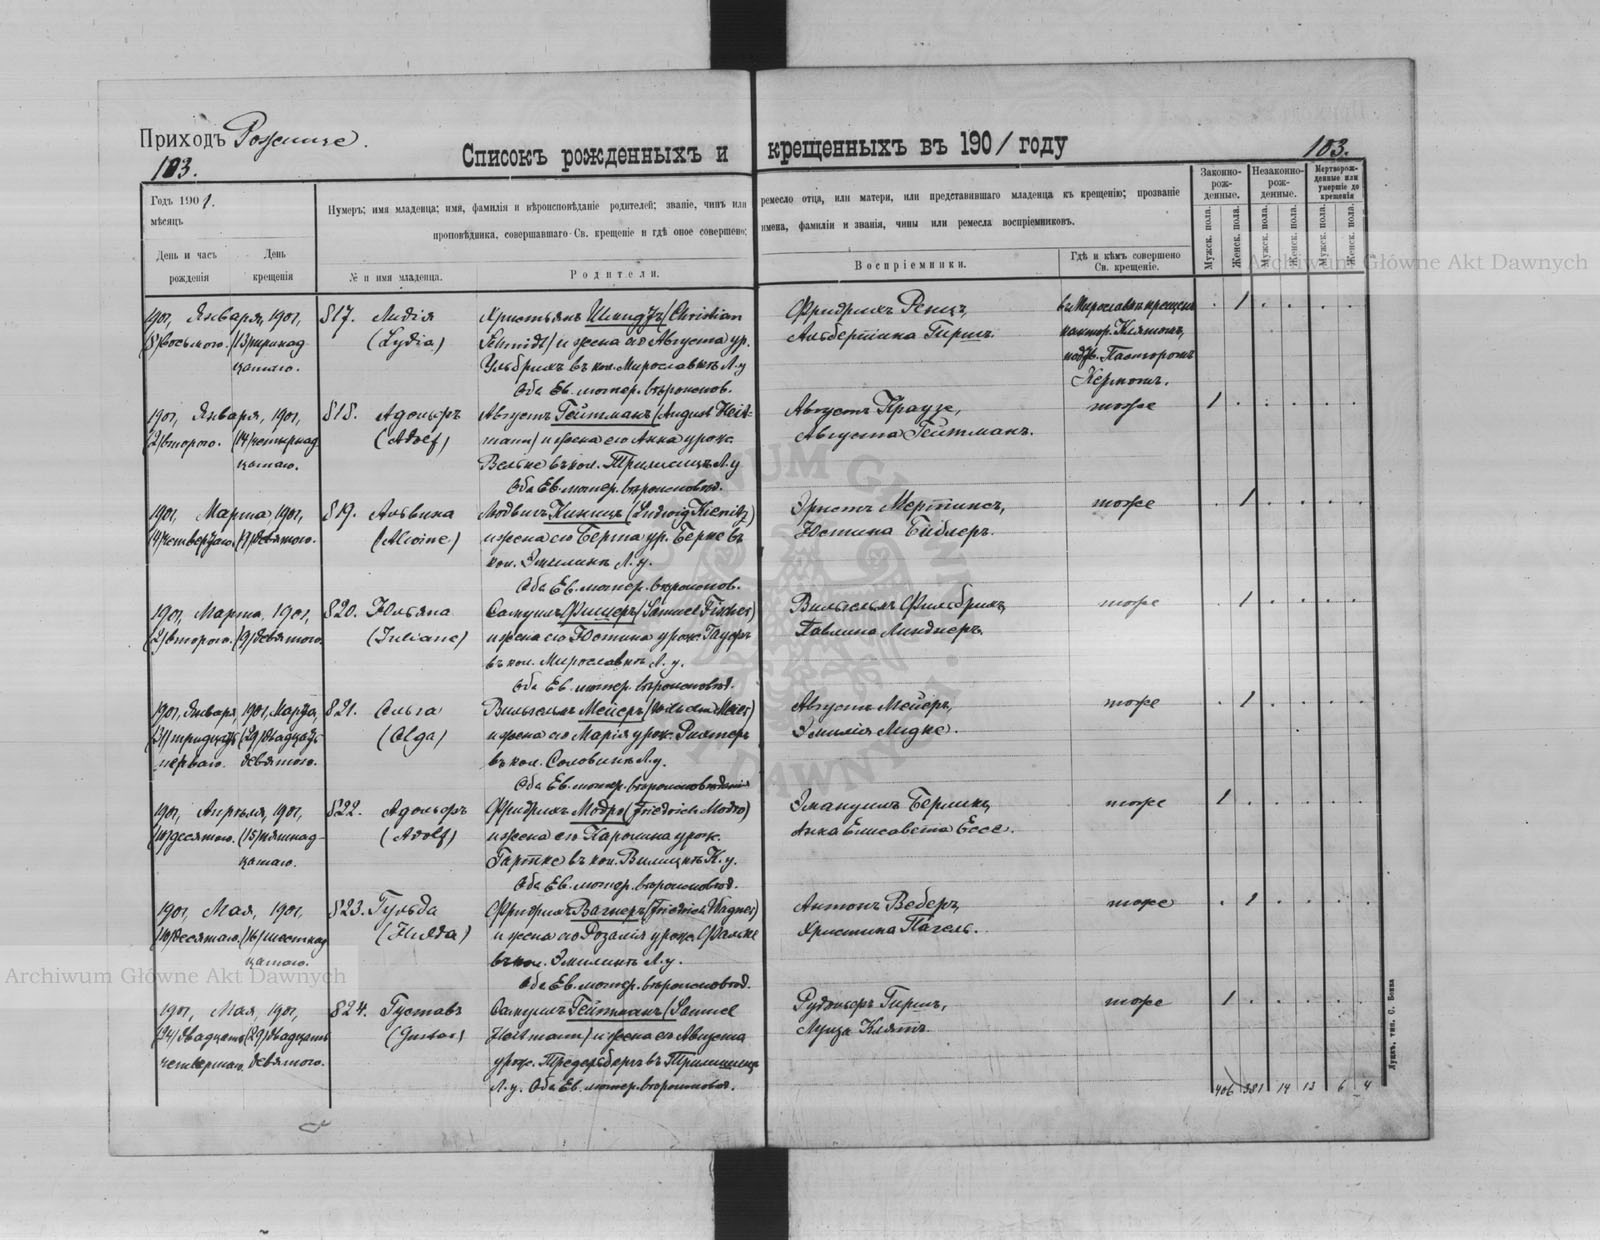 Приходъ Рожище.
103.
Списокъ рожденныхъ и крещенныхъ въ 1901 году
103.
Годъ 1901.
мѣсяцъ
День и часъ рожденія
День крещенія
Нумеръ; имя младенца; имя, фамилія и вѣроисповѣданіе родителей; званіе, чинъ или ремесло отца, или матери, или представившаго младенца къ крещенію; прозваніе
проповѣдника, совершавшаго Св. крещеніе и гдѣ оное совершено; имена, фамиліи и званія, чины или ремесла воспріемниковъ.
№ и имя младенца.
Родители.
Воспріемники.
Гдѣ и кѣмъ совершено Св. крещеніе.
Законно-рож-денные.
Незаконно-рож-денные.
Мертворож-денные или умершіе до крещенія
Мужск. пола.
Женск. пола.
Мужск. пола.
Женск. пола.
Мужск. пола.
Женск. пола.
1901, Января, 1901,
(8) восьмого. (13) тринад-
цатаго.
817. Лидія
(Lydia)
Христьянъ Шмидтъ (Christian
Schmidt) и жена его Августа ур.
Ульбрихъ въ кол. Мирославкѣ Л. у
Оба Ев. лютер. вѣроисповѣд.
Фридрихъ Ренцъ,
Альбертина Гиршъ.
въ Мирославкѣ крещенъ
кантор. Клятомъ,
подтв. Пасторомъ
Кермомъ.
1
1901, Января, 1901,
(2) второго. (14) четырнад
цатаго.
818. Адольфъ
(Adolf)
Августъ Гейтманъ (August Heit-
mann) и жена его Анна урож.
Вельке въ кол. Л. у
Оба Ев. лютер. вѣроисповѣд.
Августъ Краузе,
Августа Гейтманъ.
тоже
1
1901, Марта, 1901,
(4) четвертаго. (9) девятого.
819. Альвина
(Alwine)
Людвигъ Киницъ (Ludwig Kienitz)
и жена его Берта ур. Берке въ
кол. Эмилинъ Л. у.
Оба Ев. лютер. вѣроисповѣд.
Эрнстъ Мертинсъ,
Юстина Бидлеръ.
тоже
1
1901, Марта, 1901,
(2) второго. (9) девятого.
820. Юльяна
(Juliane)
Самуилъ Фишеръ (Samuel Fischer)
и жена его Юстина урож. Гауеръ
въ кол. Мирославкѣ Л. у.
Оба Ев. лютер. вѣроисповѣд.
Вильгельмъ Фильбрихъ,
Павлина Линднеръ.
тоже
1
1901, Января, 1901, Марта,
(31) тридцать (29) двадцать
перваго. девятого.
821. Ольга
(Olga)
Вильгельмъ Мейеръ (Wilhelm Meier)
и жена его Марія урож. Рихтеръ
въ кол. Соловинъ Л. у.
Оба Ев. лютер. вѣроисповѣданія
Августъ Мейеръ,
Эмилія Лидке.
тоже
1
1901, Апрѣля, 1901,
(10) десятого. (15) пятнад-
цатаго.
822. Адольфъ
(Adolf)
Фридрихъ Модро (Friedrich Modro)
и жена его Каролина урож.
Гартке въ кол. К. у.
Оба Ев. лютер. вѣроисповѣд.
Эмануилъ Берлинъ,
Анна Елисавета Ессе.
тоже
1
1901, Мая, 1901,
(10) десятаго. (16) шестнад
цатаго.
823. Гульда
(Hulda)
Фридрихъ Вагнеръ (Friedrich Wagner)
и жена его Розалія урож. Фальке
въ кол. Эмилинъ Л. у.
Оба Ев. лютер. вѣроисповѣд.
Антонъ Веберъ,
Христина Пагель.
тоже
1
1901, Мая, 1901,
(24) двадцать (29) двадцать
четвертаго. девятого.
824. Густавъ
(Gustav)
Самуилъ Гейтманъ (Samuel
Heitmann) и жена его Августа
урож. въ
Л. у. Оба Ев. лютер. вѣроисповѣд.
Рудольфъ Гиршъ,
Луиза Клятъ.
тоже
1
406 381 14 13 6 4
Луцкъ, тип. С. Бокка
Archiwum Główne Akt Dawnych
Archiwum Główne Akt Dawnych